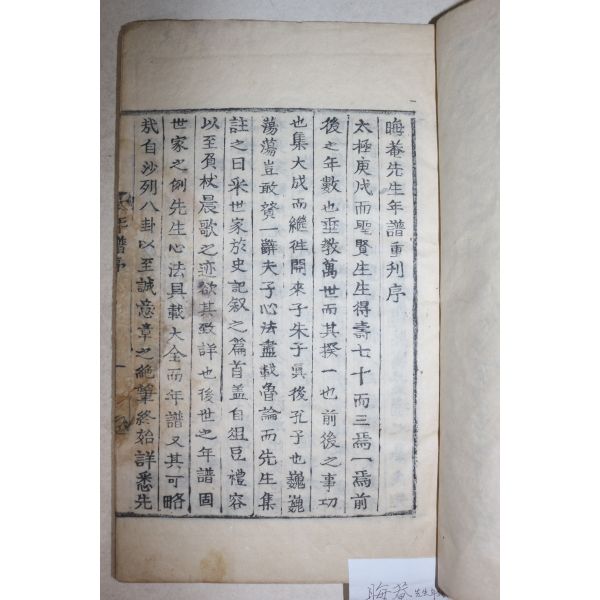 晦菴先生年譜重刋序
太極庚戌而聖賢生生得壽七十而三焉一焉前
後之年數也垂教萬世而其揆一也前後之事功
也集大成而繼徃開來子朱子眞後孔子也巍巍
蕩蕩豈敢賛一辭夫子心法盡載魯論而先生集
註之曰采世家於史記叙之篇首盖自俎豆禮容
以至負杖晨歌之迹欲其致詳也後世之年譜固
世家之例先生心法具載大全而年譜又其可略
㢤自沙列八卦以至誠意章之絶筆終始詳悉先
年譜序 一
晦菴 先生年